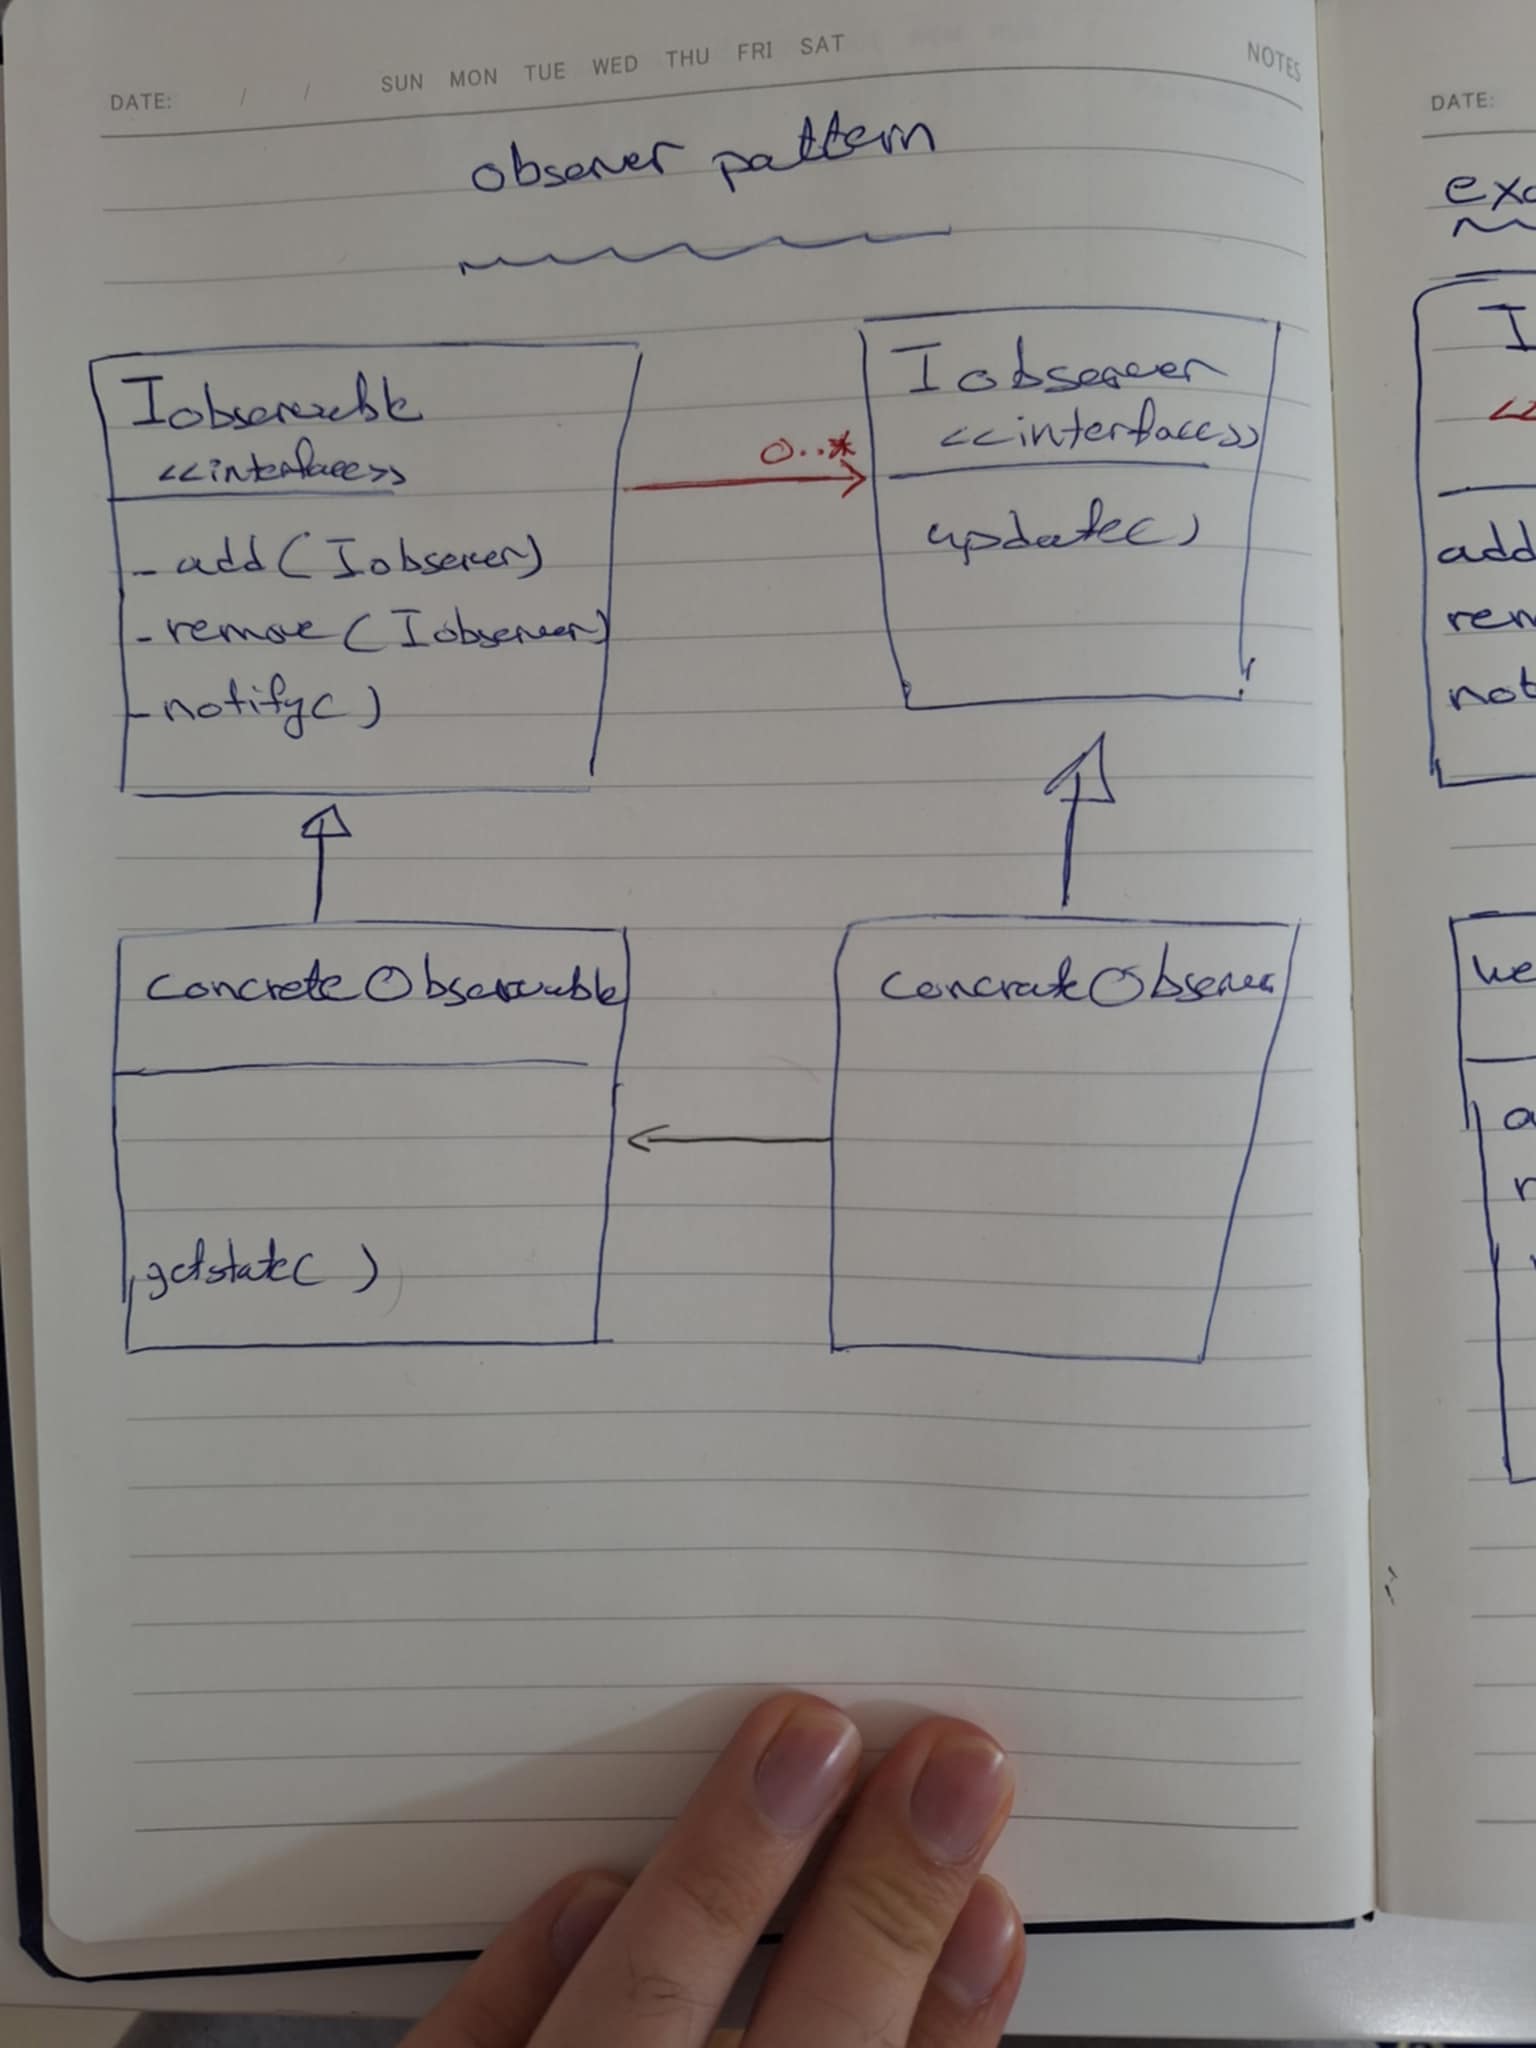 DATE: / / SUN MON TUE WED THU FRI SAT NOTES
observer pattern
Iobservable
<<interface>>
- add (Iobserver)
- remove (Iobserver)
- notify( )
0..*
Iobserver
<<interface>>
update( )
concreteObservable
getstate( )
concrateObserver
DATE:
exa
I
<<
add
rem
not
we
a
r